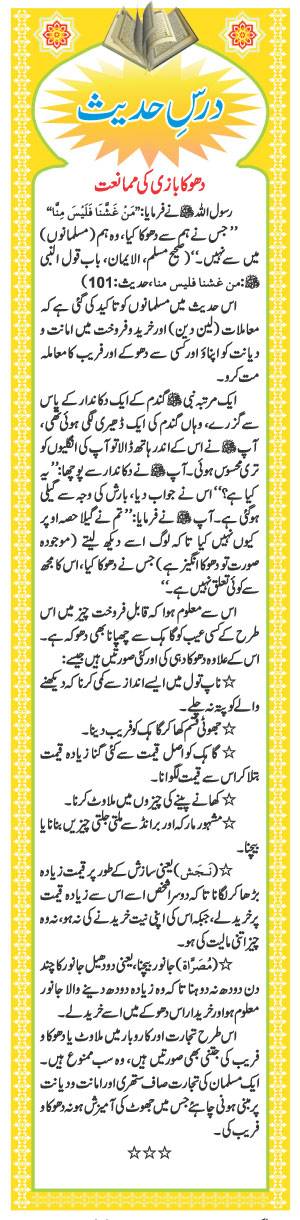 درسِ حدیث
دھوکا بازی کی ممانعت
رسول اللہ ﷺ نے فرمایا: ’’مَنْ غَشَّنَا فَلَيْسَ مِنَّا‘‘
’’جس نے ہم سے دھوکا کیا، وہ ہم (مسلمانوں)
میں سے نہیں۔‘‘ (صحیح مسلم، الایمان، باب قول النبی
ﷺ: من غشنا فلیس منا، حدیث: 101)
اس حدیث میں مسلمانوں کو تاکید کی گئی ہے کہ
معاملات (لین دین) اور خرید و فروخت میں امانت و
دیانت کو اپناؤ اور کسی سے دھوکے اور فریب کا معاملہ
مت کرو۔
ایک مرتبہ نبی ﷺ گندم کے ایک دکاندار کے پاس
سے گزرے، وہاں گندم کی ایک ڈھیری لگی ہوئی تھی،
آپ ﷺ نے اس کے اندر ہاتھ ڈالا تو آپ کی انگلیوں کو
تری محسوس ہوئی۔ آپ ﷺ نے دکاندار سے پوچھا: ’’یہ
کیا ہے؟‘‘ اس نے جواب دیا، بارش کی وجہ سے گیلی
ہوگئی ہے۔ آپ ﷺ نے فرمایا: ’’تم نے گیلا حصہ اوپر
کیوں نہیں کیا تاکہ لوگ اسے دیکھ لیتے (موجودہ
صورت تو دھوکا انگیز ہے) جس نے دھوکا کیا، اس کا مجھ
سے کوئی تعلق نہیں ہے۔‘‘
اس سے معلوم ہوا کہ قابل فروخت چیز میں اس
طرح کے کسی عیب کو گاہک سے چھپانا بھی دھوکہ ہے۔
اس کے علاوہ دھوکا دہی کی اور کئی صورتیں ہیں جیسے:
☆ ناپ تول میں ایسے انداز سے کمی کرنا کہ دیکھنے
والے کو پتہ نہ چلے۔
☆ جھوٹی قسم کھا کر گاہک کو فریب دینا۔
☆ گاہک کو اصل قیمت سے کئی گنا زیادہ قیمت
بتلا کر اس سے قیمت لگوانا۔
☆ کھانے پینے کی چیزوں میں ملاوٹ کرنا۔
☆ مشہور مارکہ اور برانڈ سے ملتی جلتی چیزیں بنانا یا
بیچنا۔
☆ (نَجَش) یعنی سازش کے طور پر قیمت زیادہ
بڑھا کر لگانا تاکہ دوسرا شخص اسے اس سے زیادہ قیمت
پر خرید لے، جبکہ اس کی اپنی نیت خریدنے کی نہ ہو، نہ وہ
چیز اتنی مالیت کی ہو۔
☆ (مُصَرَّاة) جانور بیچنا، یعنی دودھیل جانور کا چند
دن دودھ نہ دوہنا تاکہ وہ زیادہ دودھ دینے والا جانور
معلوم ہو اور خریدار اس دھوکے میں اسے خرید لے۔
اس طرح تجارت اور کاروبار میں ملاوٹ یا دھوکا و
فریب کی جتنی بھی صورتیں ہیں، وہ سب ممنوع ہیں۔
ایک مسلمان کی تجارت صاف ستھری اور امانت و دیانت
پر مبنی ہونی چاہئے جس میں جھوٹ کی آمیزش ہو نہ دھوکا و
فریب کی۔
☆☆☆